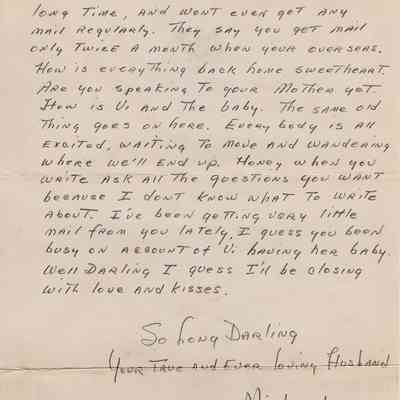 long Time, and wont ever get any
mail regularly. They say you get mail
only Twice a month when your overseas.
How is everything back home sweetheart.
Are you speaking to your Mother yet.
How is Vi and The baby. The same old
Thing goes on here. Every body is all
excited, waiting to move and wandering
where we'll end up. Honey when you
write ask all the questions you want
because I dont know what to write
about. I've been getting very little
mail from you lately, I guess you been
busy on account of Vi having her baby.
Well Darling I guess I'll be closing
with love and kisses.
So Long Darling
Your True and Ever Loving Husband